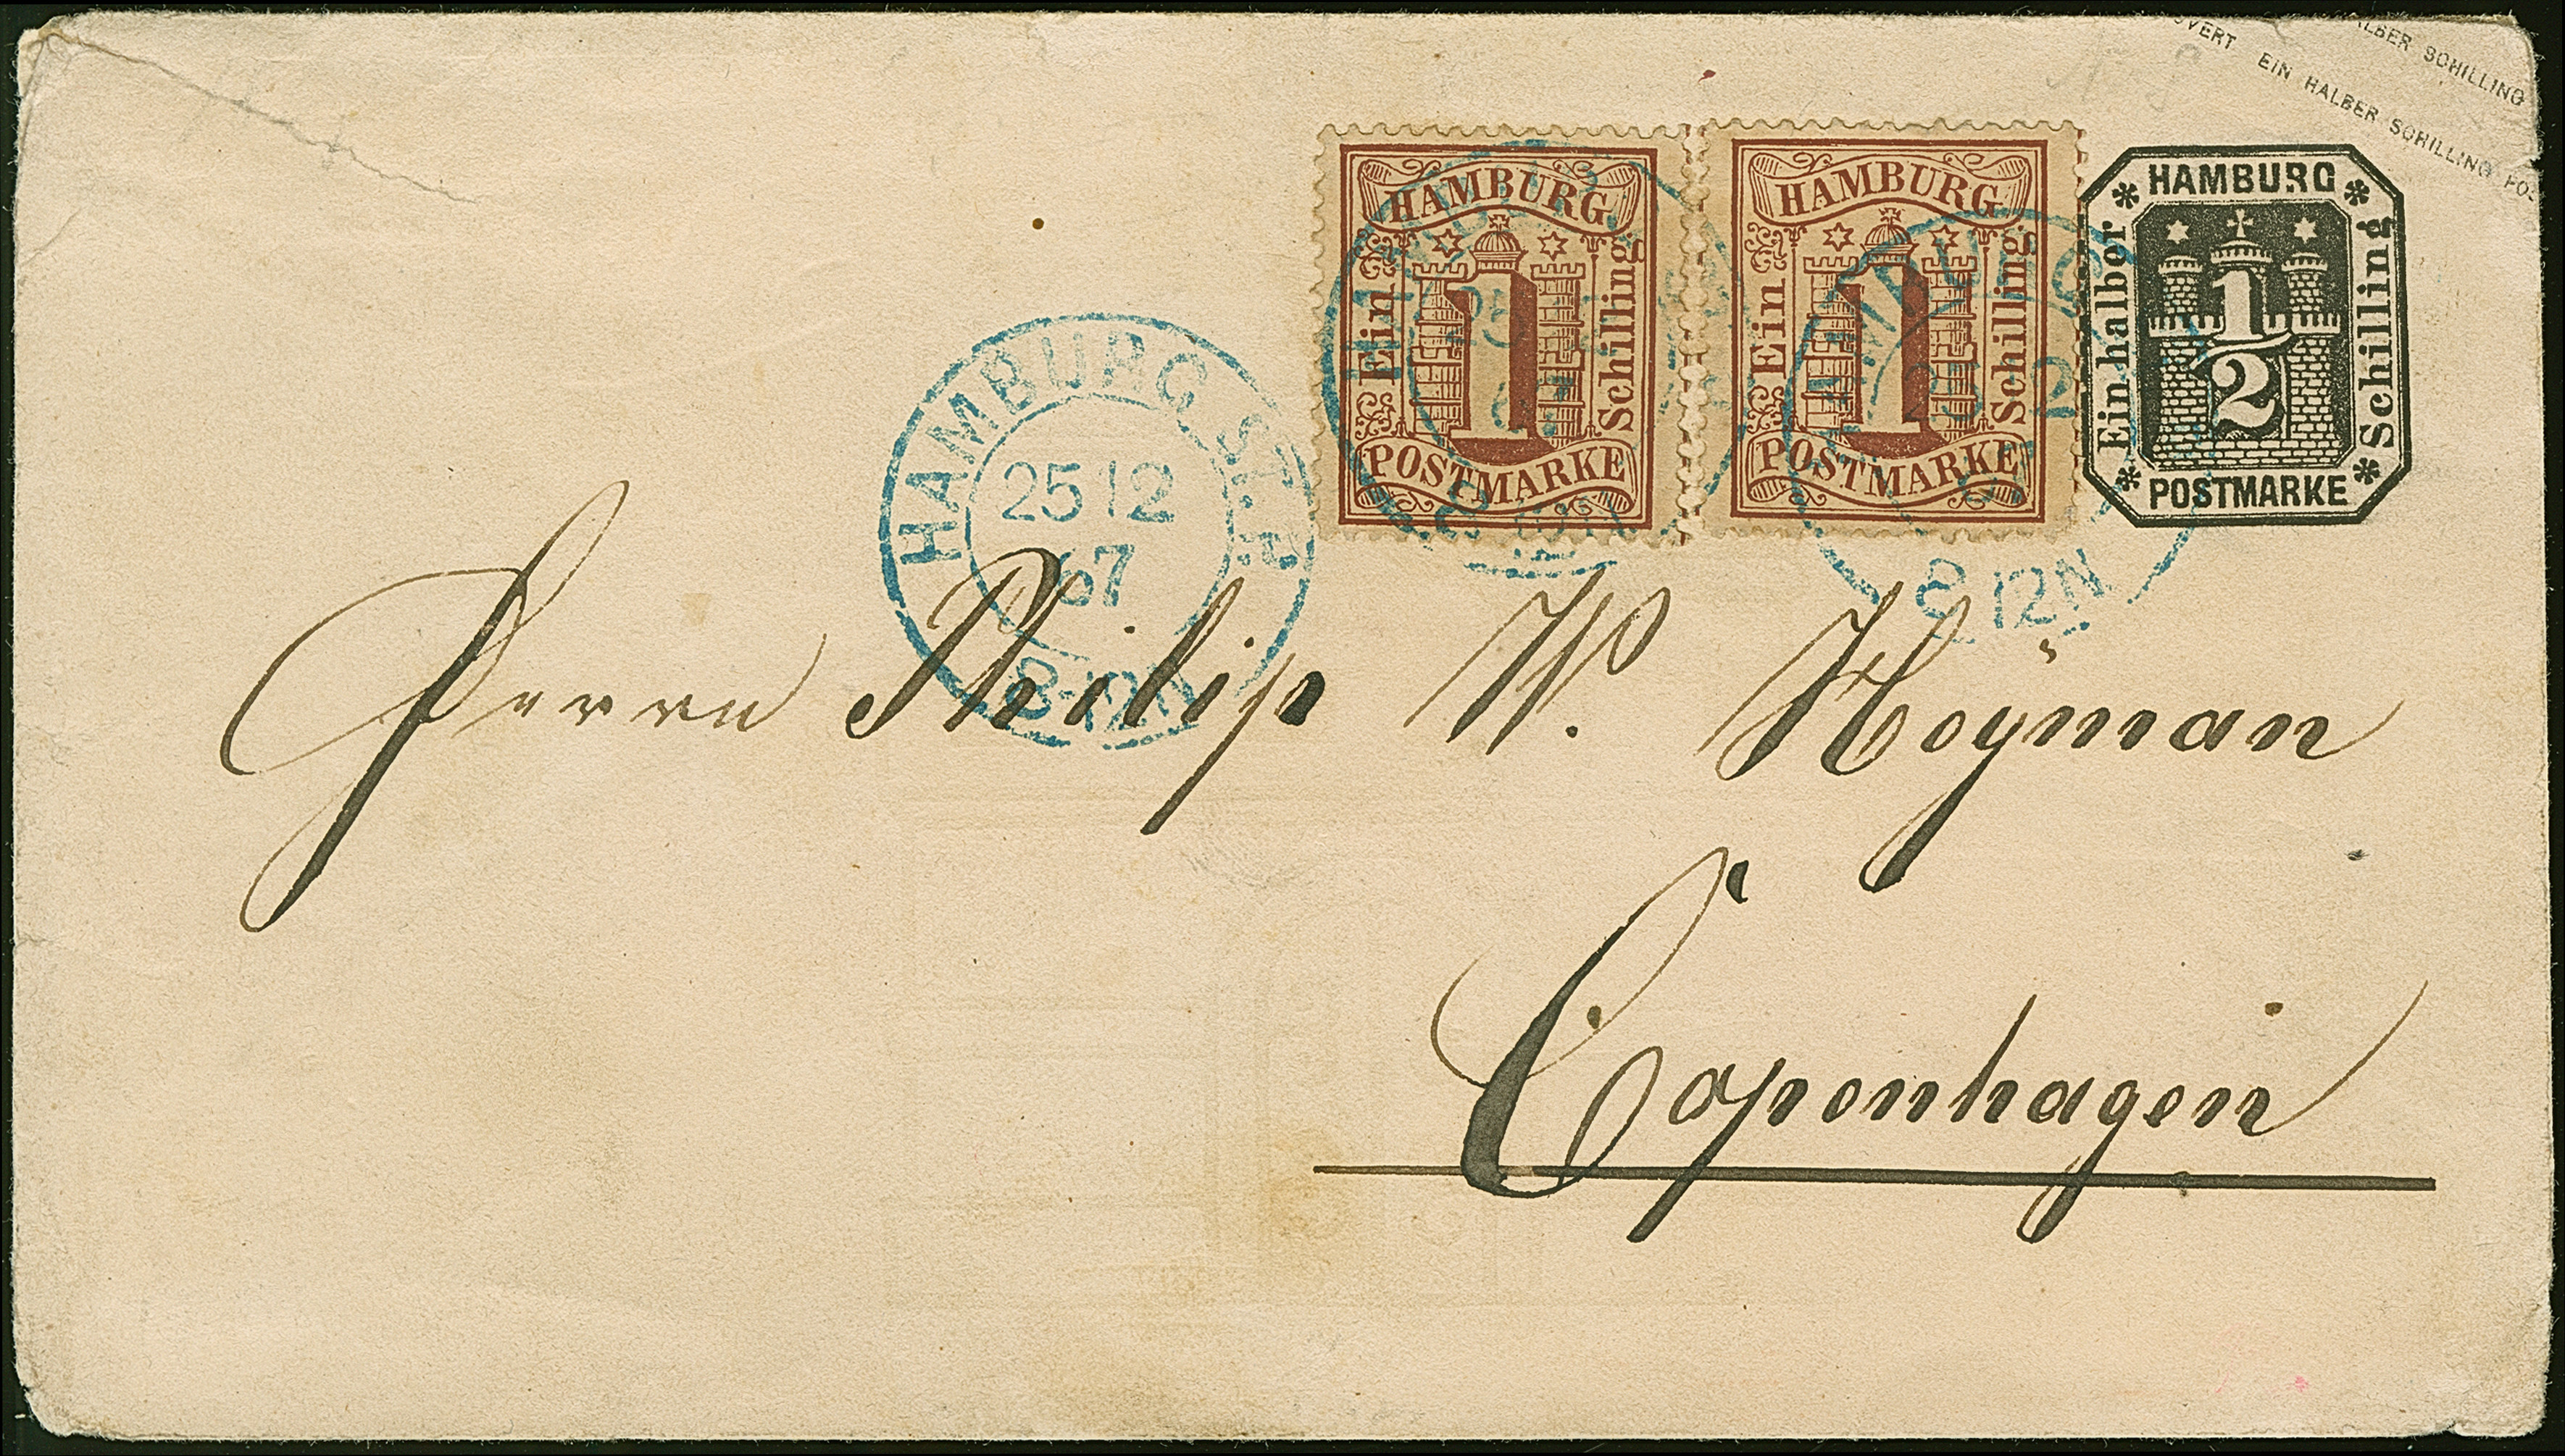 ALBER SCHILLING
UVERT EIN HALBER SCHILLING PO-
HAMBURG
Ein
1
Schilling
POSTMARKE
HAMBURG
Ein
1
Schilling
POSTMARKE
HAMBURG
Ein halber
1/2
Schilling
POSTMARKE
HAMBURG ST. P.
25 12
67
8-12N
8-12N
Herrn Philip W. Hÿman
Copenhagen